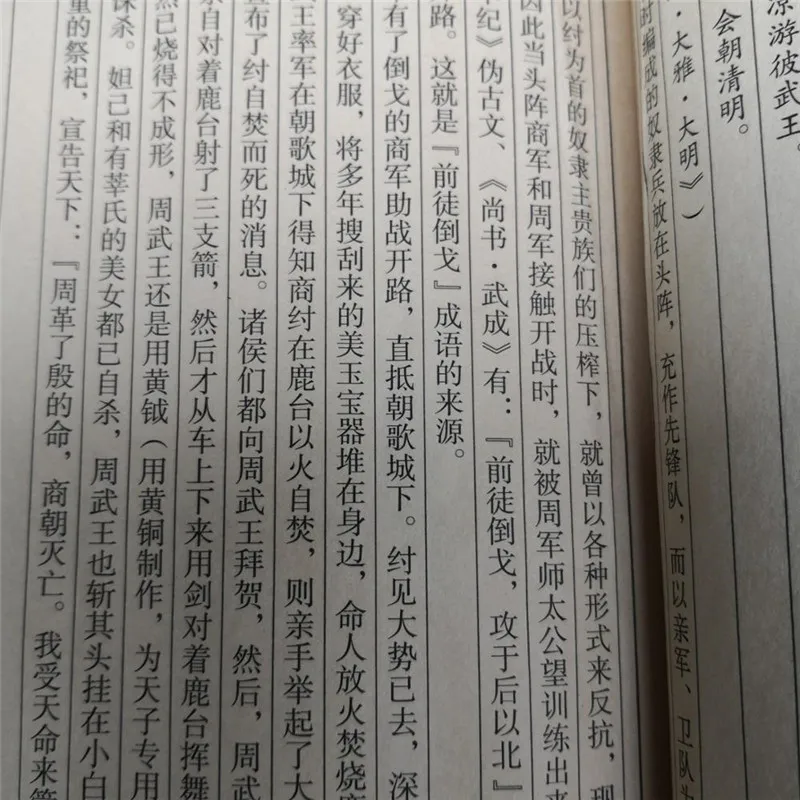 游彼武王。
会朝清明。
·大雅·大明》）
时编成的奴隶兵放在头阵，充作先锋队，而以亲军、卫队为
以纣为首的奴隶主贵族们的压榨下，就曾以各种形式来反抗，现
因此当头阵商军和周军接触开战时，就被周军师太公望训练出来
本纪》伪古文、《尚书·武成》有：『前徒倒戈，攻于后以北』
路。这就是『前徒倒戈』成语的来源。
有了倒戈的商军助战开路，直抵朝歌城下。纣见大势已去，深
穿好衣服，将多年搜刮来的美玉宝器堆在身边，命人放火焚烧
王率军在朝歌城下得知商纣在鹿台以火自焚，则亲手举起了大
布了纣自焚而死的消息。诸侯们都向周武王拜贺，然后，周武
亲自对着鹿台射了三支箭，然后才从车上下来用剑对着鹿台挥舞
然已烧得不成形，周武王还是用黄钺（用黄铜制作，为天子专用
诛杀。妲己和有莘氏的美女都已自杀，周武王也斩其头挂在小白
重的祭祀，宣告天下：『周革了殷的命，商朝灭亡。我受天命来